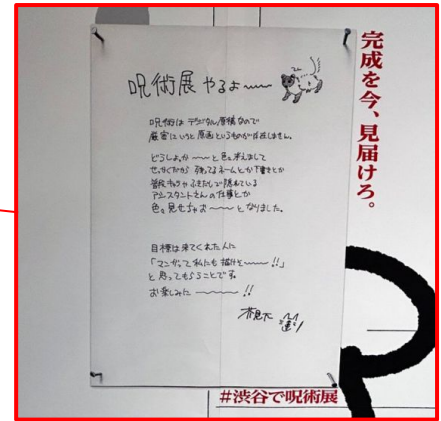 呪術展やるよ〜〜
呪術はデジタル原稿なので
厳密にいうと原画というものが存在しません。
どうしよっか〜〜と色々考えまして
せっかくだから残ってるネームとか下書きとか
普段キャラやふきだしで隠れている
アシスタントさんの仕事とか
色々見せちゃお〜〜〜となりました。
目標は来てくれた人に
「マンガって私にも描けそ〜〜〜!!」
と思ってもらうことです。
お楽しみに〜〜〜〜!!
芥見下々
完成を今、見届けろ。
#渋谷で呪術展